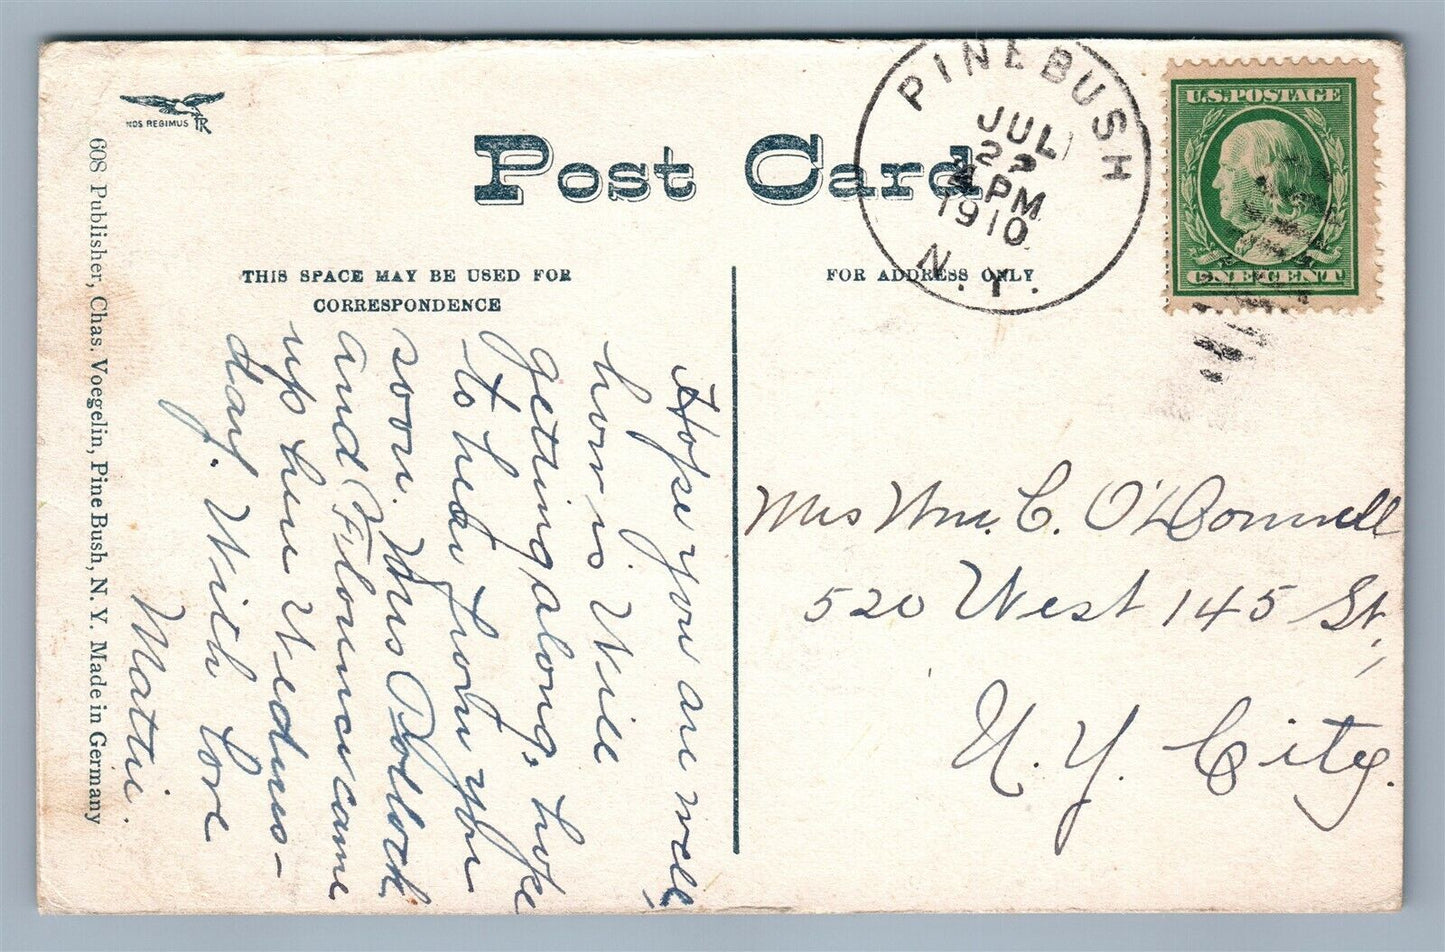 NOS REGIMUS TR
Post Card
THIS SPACE MAY BE USED FOR
CORRESPONDENCE
FOR ADDRESS ONLY
PINE BUSH
JUL
4 PM
1910
N.Y.
U.S. POSTAGE
ONE CENT
608 Publisher, Chas. Voegelin, Pine Bush, N. Y. Made in Germany
Hope you are well,
how is Will
getting along, hope
to hear from you
soon. Mrs Pollock
and Florence came
up here Wednes-
day. With love
Mattie.
Mrs Wm. C. O'Connell
520 West 145 St,
N. Y. City.